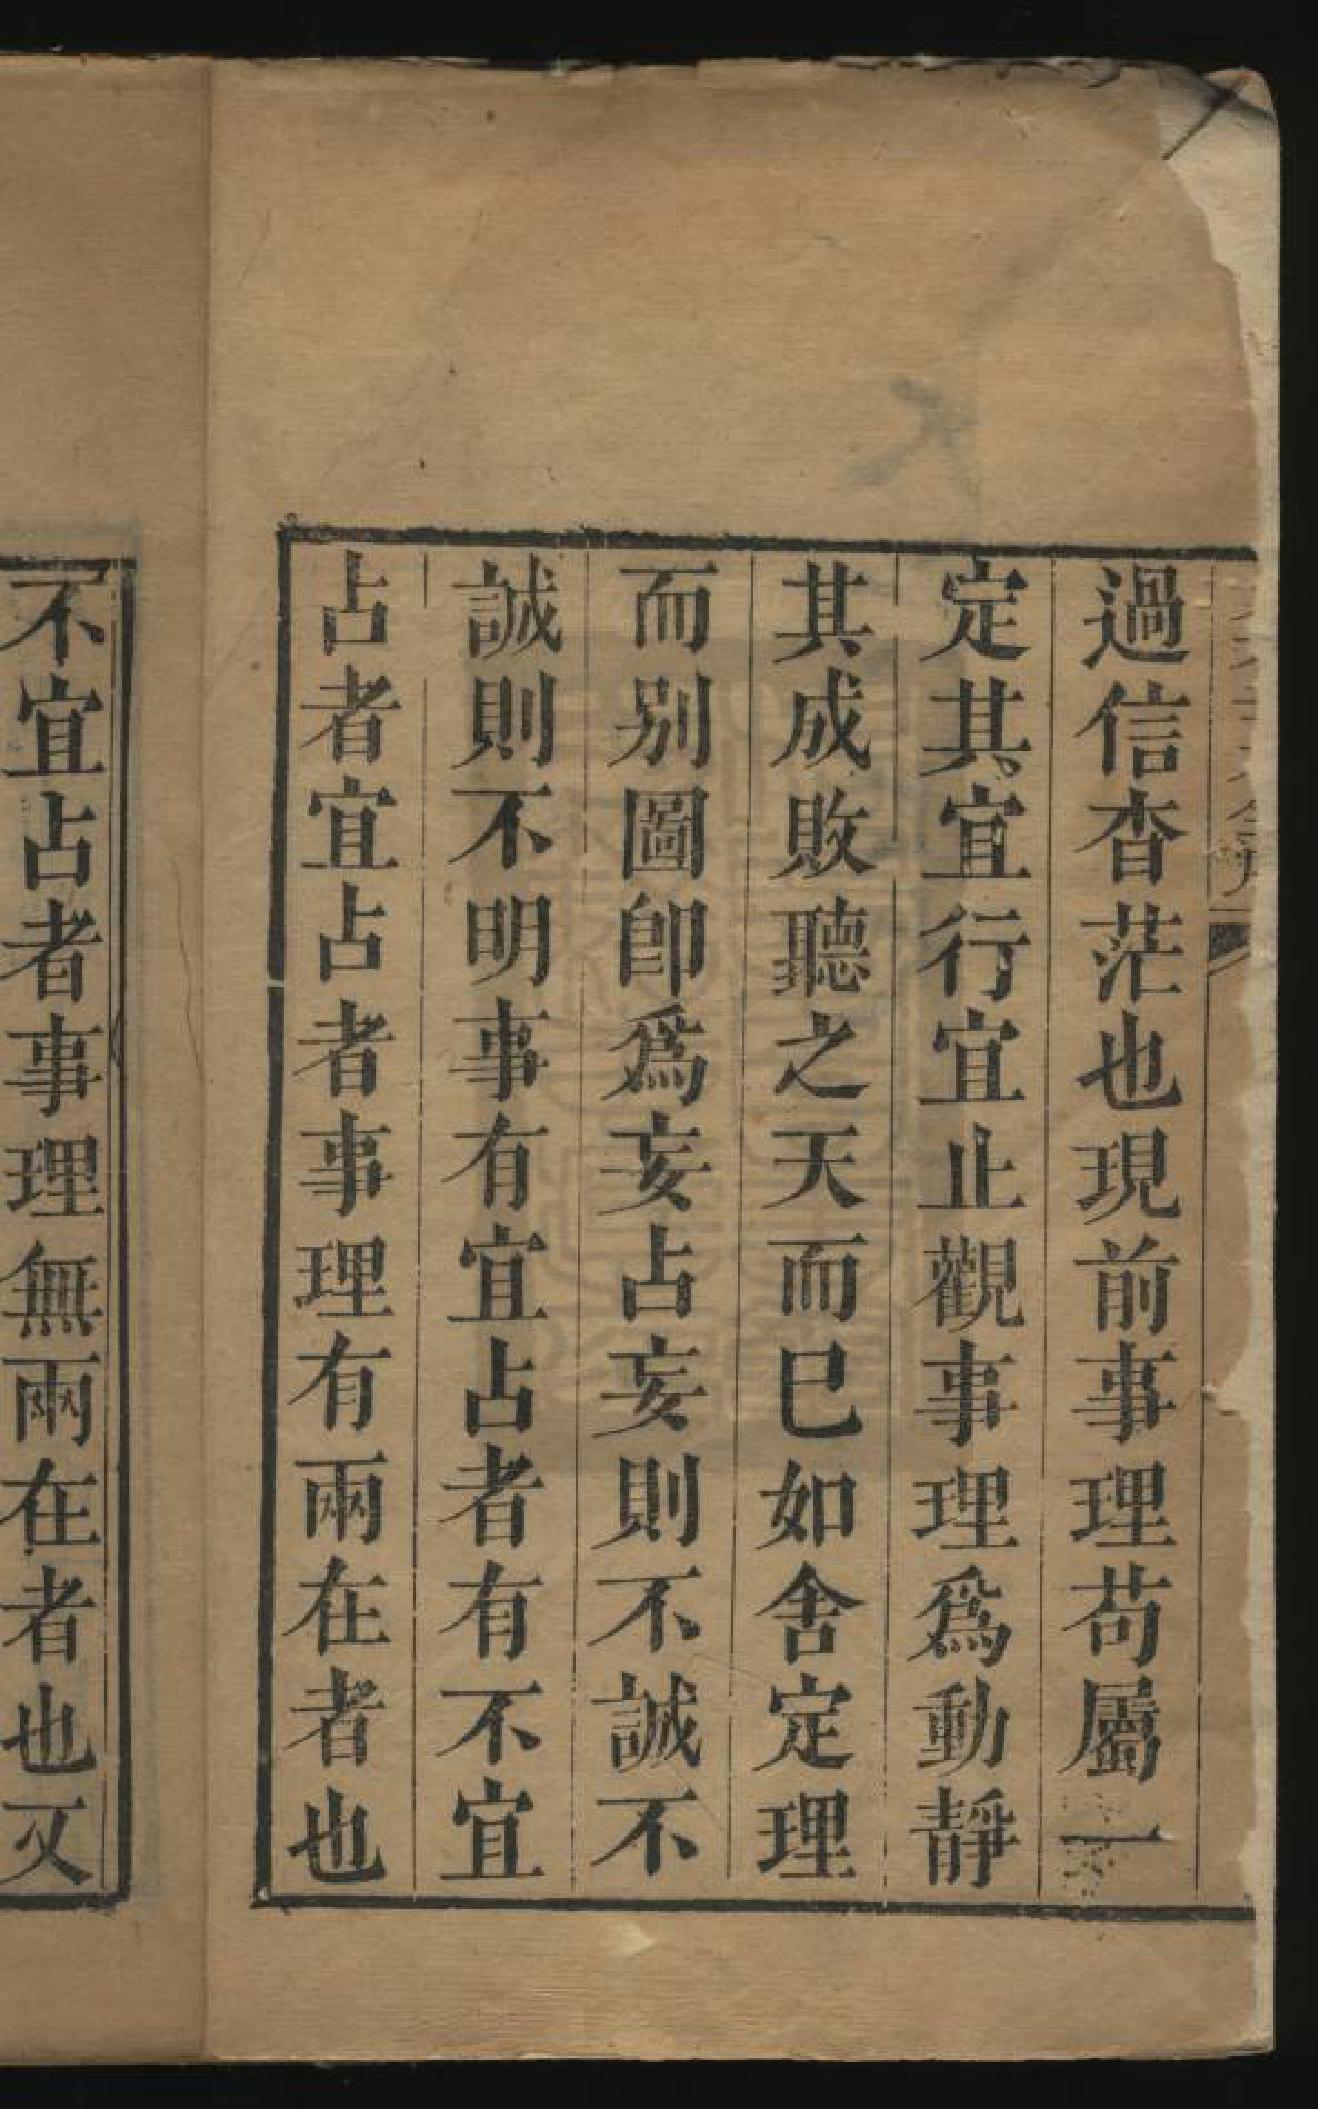 過信杳茫也現前事理苟屬一
定其宜行宜止觀事理爲動靜
其成敗聽之天而巳如舍定理
而別圖卽爲妄占妄則不誠不
誠則不明事有宜占者有不宜
占者宜占者事理有兩在者也
不宜占者事理無兩在者也又